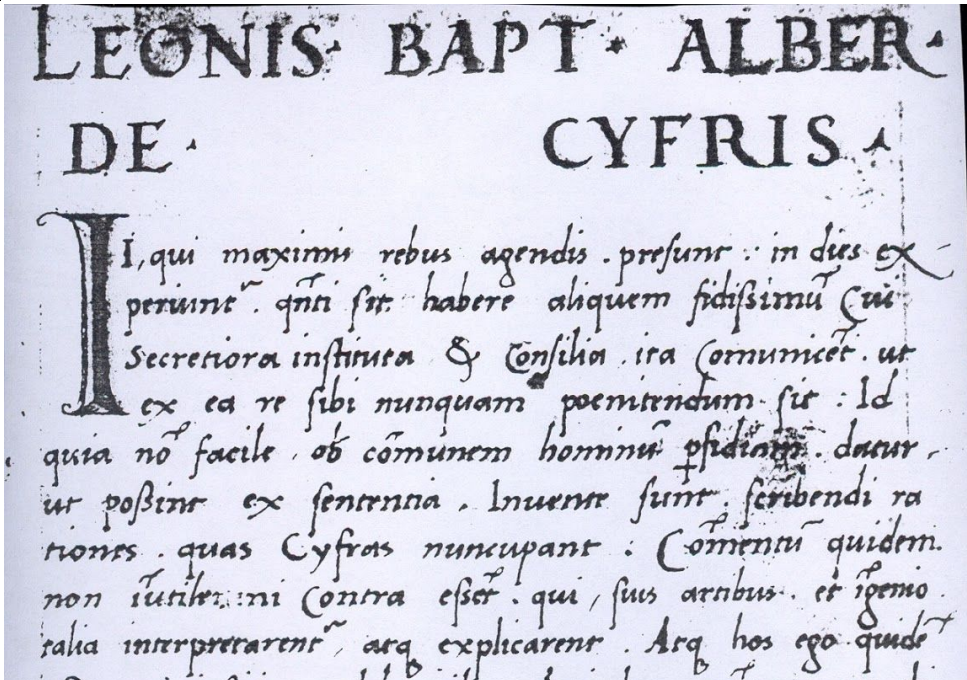 LEONIS · BAPT · ALBER ·
DE · CYFRIS ·
II, qui maximis rebus agendis . presunt : in dies ex
periunt᷑ . qn̄ti sit habere aliquem fidissimū Cui
Secretiora instituta & Consilia . ita Comunicēt . ut
ex ea re sibi nunquam poenitendum sit : Id
quia nō facile . ob cōmunem hominū ꝑfidiam . datur ,
ut poßint ex sententia . Invente sunt . scribendi ra
tiones . quas Cyfras nuncupant : Cōmentū quidem .
non īutile : ni Contra essēt . qui , suis artibus . et īgenio
talia interpretarent᷑ , atq explicarent . Atq hos ego quidē